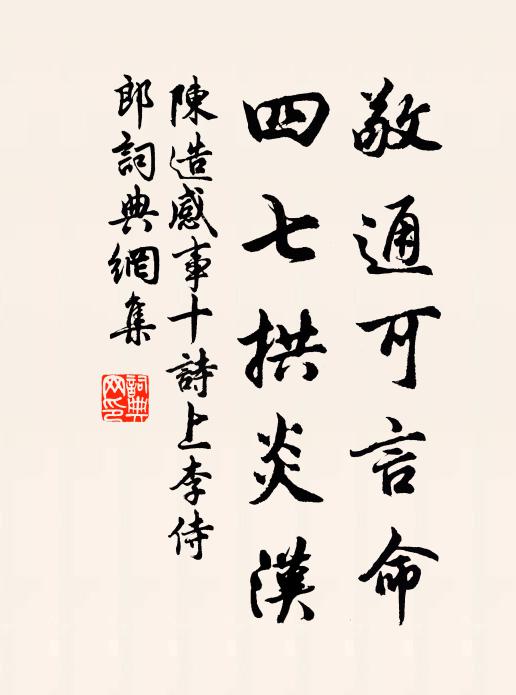 敬通可言命
四七拱炎漢
陳造感事十詩上李侍
郎詞典網集
詞典网印